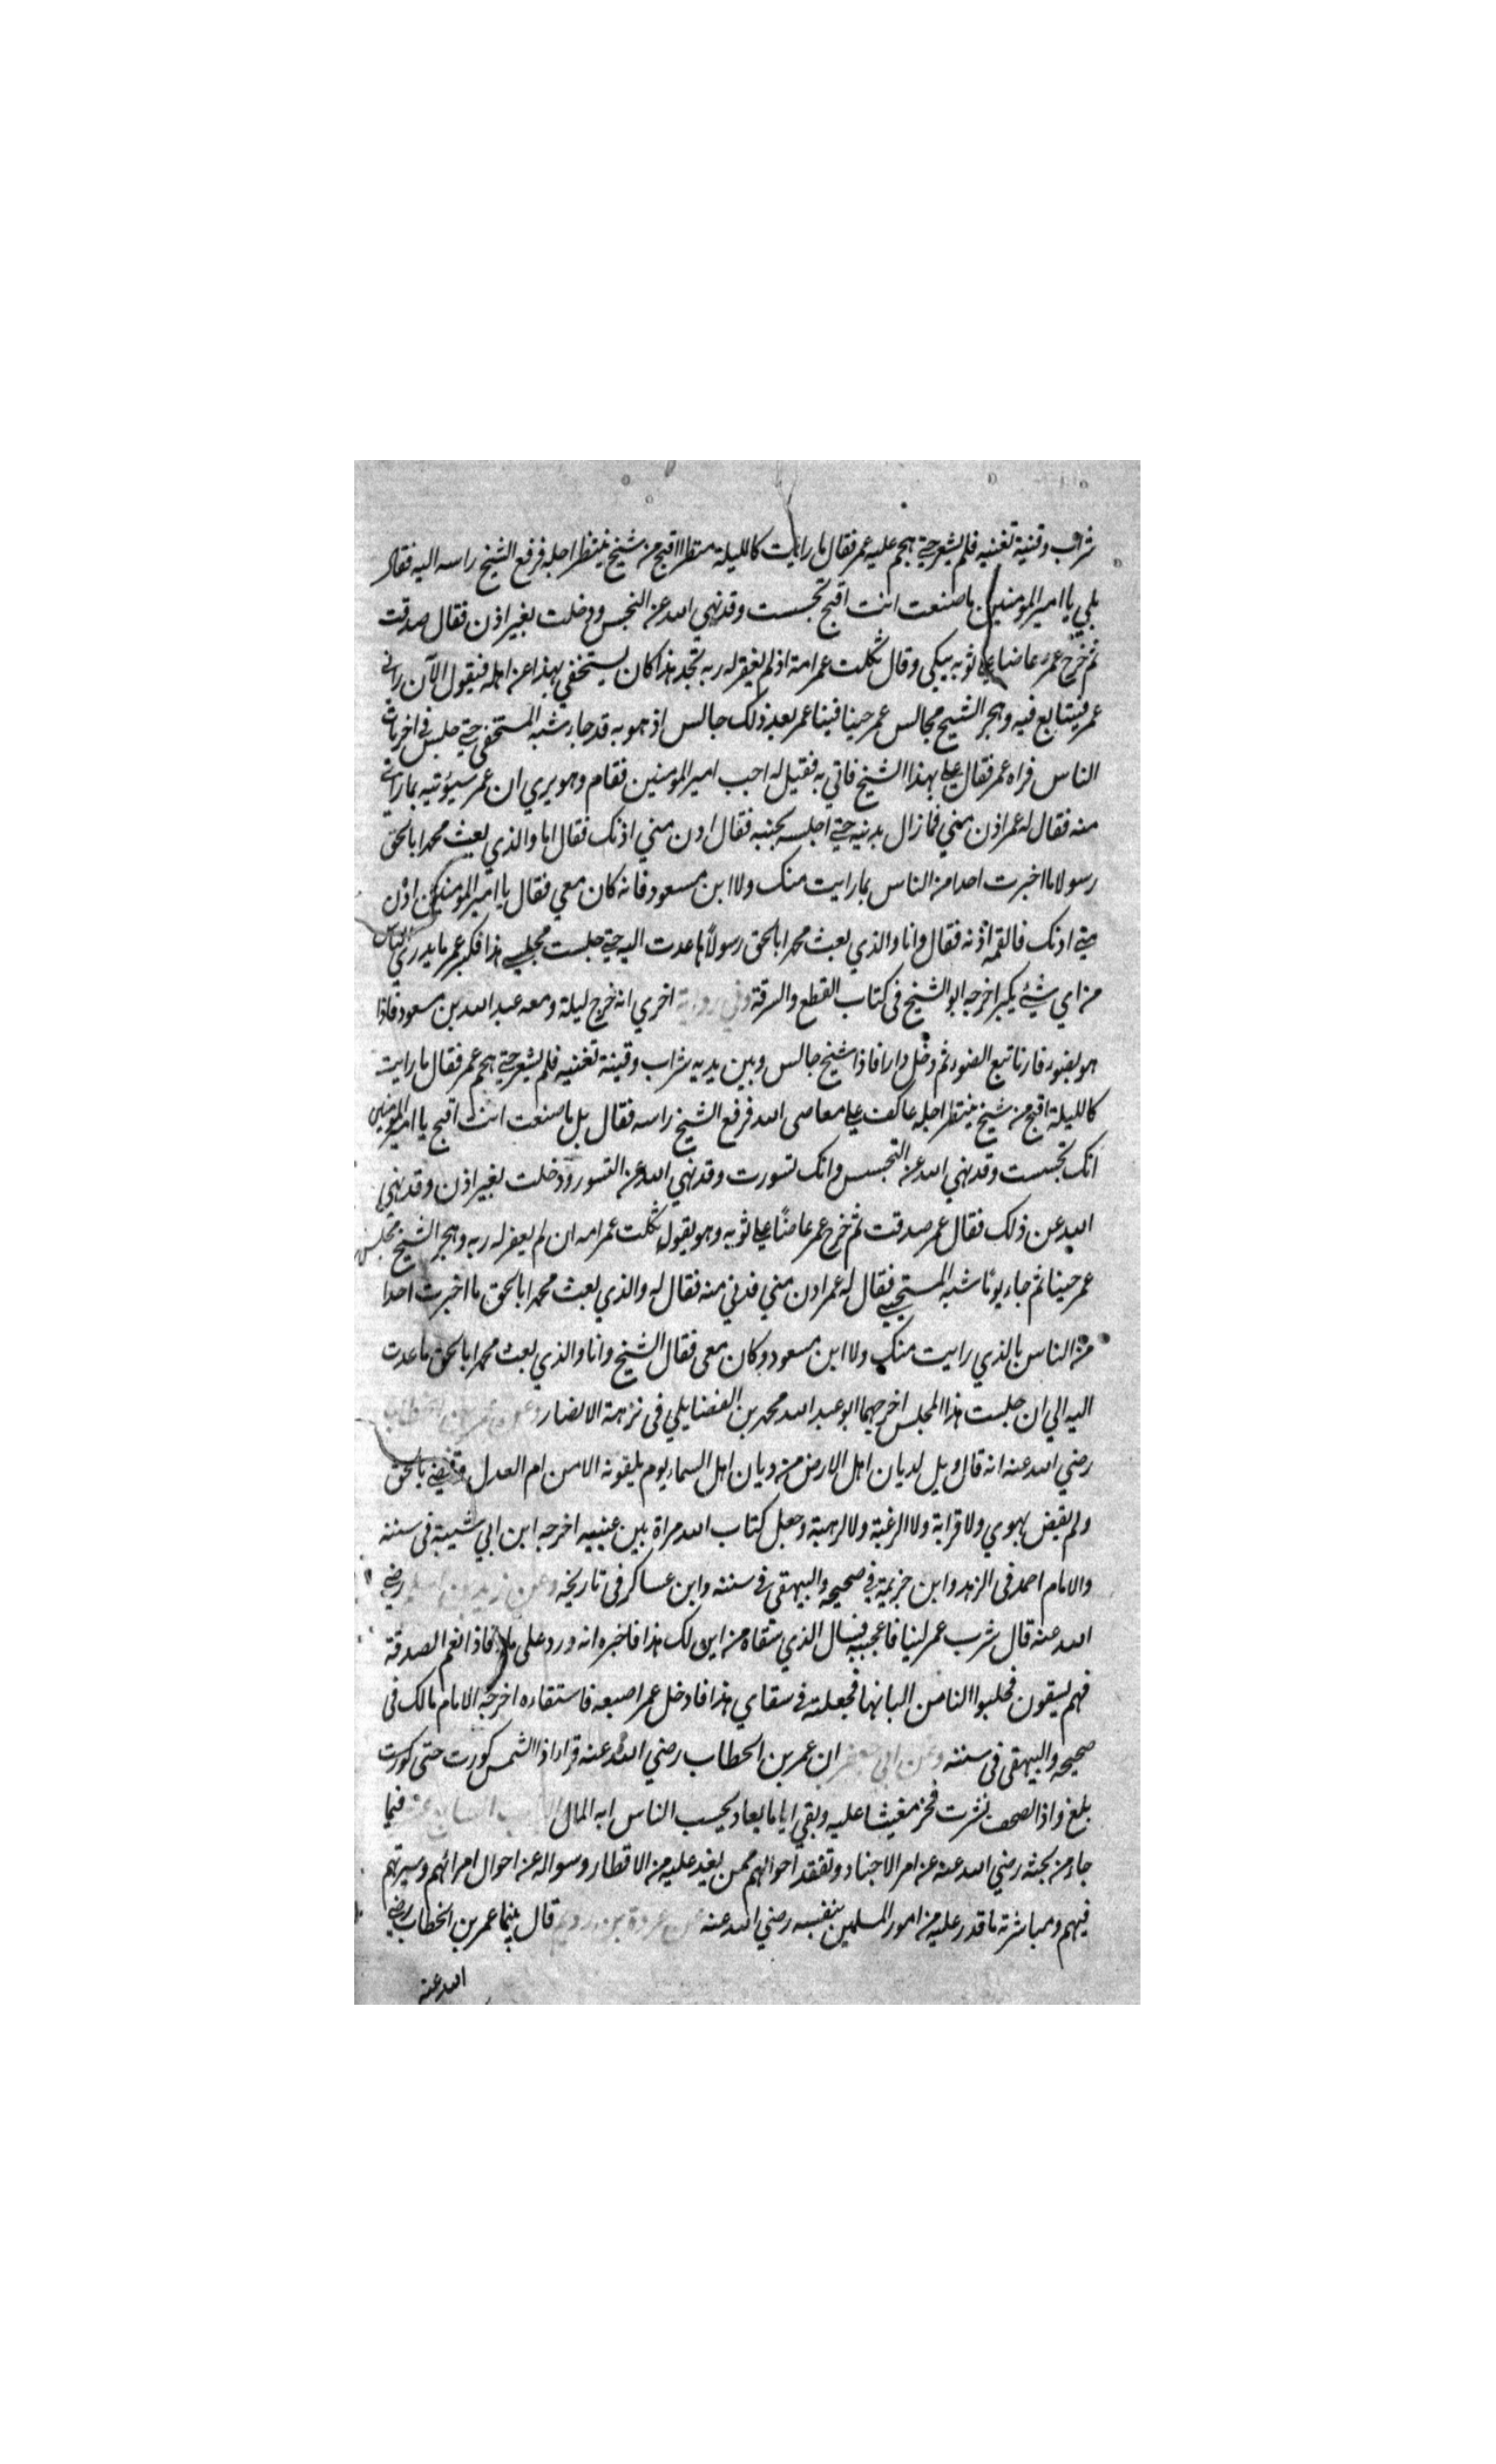 شراب وقنية تغنيه فلم يشعر حتى هجم عليه عمر فقال ما رايت كالليلة منظرا اقبح من شيخ ينتظر اجله فرفع الشيخ راسه اليه فقال
بلي يا امير المومنين ما صنعت انت اقبح تجسست وقد نهي الله عن التجسس ودخلت بغير اذن فقال صدقت
ثم خرج عمر عاضا على ثوبه يبكي وقال ثكلت عمر امه اذ لم يغفر له ربه تجد هذا كان يستخفي بهذا عن اهله فيقول الآن راني
عمر فيتتابع فيه وهجر الشيخ مجالس عمر حينا فبينا عمر بعد ذلك جالس اذ هو به قد جاء شبه المستخفي حتى جلس في اخريات
الناس فراه عمر فقال علي بهذا الشيخ فاتي به فقيل له اجب امير المومنين فقام وهو يري ان عمر سيؤتيه بما راى
منه فقال له عمر اذن مني فما زال يدنيه حتى اجلسه بجنبه فقال ادن مني اذنك فقال اما والذي بعث محمدا بالحق
رسولا ما اخبرت احدا من الناس بما رايت منك ولا ابن مسعود فانه كان معي فقال يا امير المومنين ادن
حتى اذنك فالقمه اذنه فقال وانا والذي بعث محمدا بالحق رسولاً ما عدت اليه حتى جلست مجلسي هذا فكبر عمر ما يدري الناس
من اي شيئ يكبر اخرجه ابو الشيخ في كتاب القطع والسرقة وفي رواية اخري انه خرج ليلة ومعه عبد الله بن مسعود فاذا
هو بضوء نار فاتبع الضوء ثم دخل دارا فاذا شيخ جالس وبين يديه شراب وقينة تغنيه فلم يشعر حتى هجم عمر فقال ما رايت
كالليلة اقبح من شيخ ينتظر اجله عاكف على معاصى الله فرفع الشيخ راسه فقال بل ما صنعت انت اقبح يا امير المومنين
انك تجسست وقد نهي الله عن التجسس وانك تسورت وقد نهي الله عن التسور ودخلت بغير اذن وقد نهي
الله عن ذلك فقال عمر صدقت ثم خرج عمر عاضًا على ثوبه وهو يقول ثكلت عمر امه ان لم يغفر له ربه وهجر الشيخ مجلس
عمر حينا ثم جاء يومًا شبه المستحيي فقال له عمر ادن مني فدني منه فقال له والذي بعث محمدا بالحق ما اخبرت احدا
من الناس بالذي رايت منك ولا ابن مسعود وكان معى فقال الشيخ وانا والذي بعث محمدا بالحق ما عدت
اليه الي ان جلست هذا المجلس اخرجهما ابو عبد الله محمد بن الفضايلي فى نزهة الابصار وعن عمر بن الخطاب
رضي الله عنه انه قال ويل لديان اهل الارض من ديان اهل السماء يوم يلقونه الا من ام العدل وقضى بالحق
ولم يقض بهوي ولا قرابة ولا الرغبة ولا لرهبة وجعل كتاب الله مراة بين عينيه اخرجه ابن ابي شيبة فى سننه
والامام احمد فى الزهد وابن خزيمة في صحيحه والبيهقى في سننه وابن عساكر فى تاريخه وعن زيد بن اسلم رضي
الله عنه قال شرب عمر لبنا فاعجبه فسال الذي سقاه من اين لك هذا فاخبره انه ورد على ماء فاذا نعم الصدقة
فهم يسقون فحلبوا لنا من البانها فجعلته في سقاي هذا فادخل عمر اصبعه فاستقاءه اخرجه الامام مالك فى
صحيحه والبيهقى فى سننه وعن ابي ان عمر بن الخطاب رضي الله عنه قرا اذا الشمس كورت حتى كورت
بلغ واذا الصحف نشرت فخر مغيشا عليه وبقي اياما يعاد يحسب الناس ابه المال فيما
جاء من بحثه رضي الله عنه عن امر الاجناد وتفقد احوالهم ممن يفد عليه من الاقطار وسواله عن احوال امرائهم وسيرتهم
فيهم ومباشرته ما قدر عليه من امور المسلمين بنفسه رضي الله عنه عن عروة بن رويم قال بينما عمر بن الخطاب رضي
الله عنه